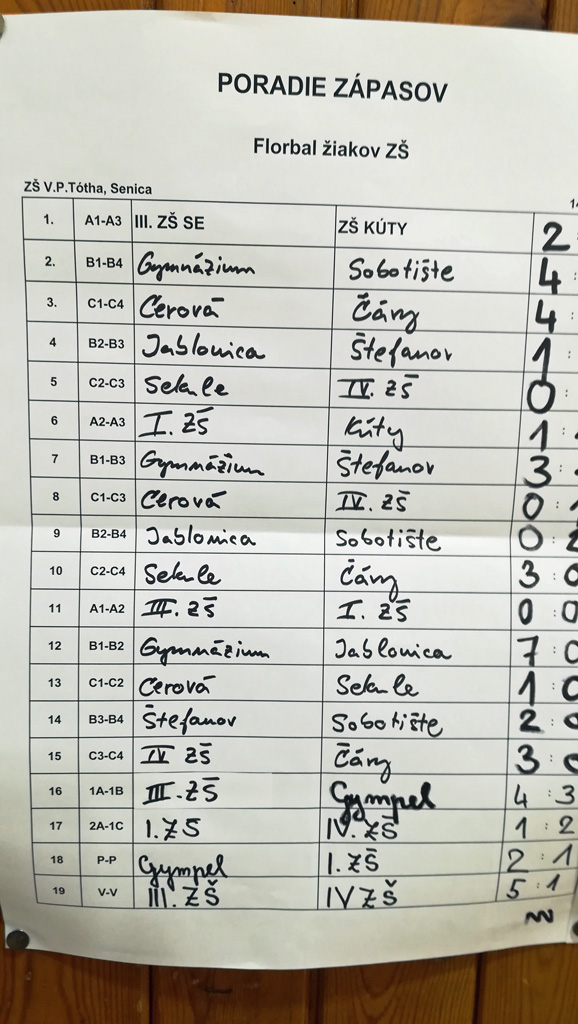 PORADIE ZÁPASOV
Florbal žiakov ZŠ
ZŠ V.P.Tótha, Senica
1. A1-A3 III. ZŠ SE ZŠ KÚTY 2
2. B1-B4 Gymnázium Sobotište 4 :
3. C1-C4 Cerová Čáry 4 :
4 B2-B3 Jablonica Štefanov 1 :
5 C2-C3 Sekule IV. ZŠ 0 :
6 A2-A3 I. ZŠ Kúty 1 :
7 B1-B3 Gymnázium Štefanov 3 :
8 C1-C3 Cerová IV. ZŠ 0 : 1
9 B2-B4 Jablonica Sobotište 0 : 2
10 C2-C4 Sekule Čáry 3 : 0
11 A1-A2 III. ZŠ I. ZŠ 0 : 0
12 B1-B2 Gymnázium Jablonica 7 : 0
13 C1-C2 Cerová Sekule 1 : 0
14 B3-B4 Štefanov Sobotište 2 : 0
15 C3-C4 IV ZŠ Čáry 3 : 0
16 1A-1B III. ZŠ Gympel 4 : 3
17 2A-1C I. ZŠ IV. ZŠ 1 : 2
18 P-P Gympel I. ZŠ 2 : 1
19 V-V III. ZŠ IV ZŠ 5 : 1